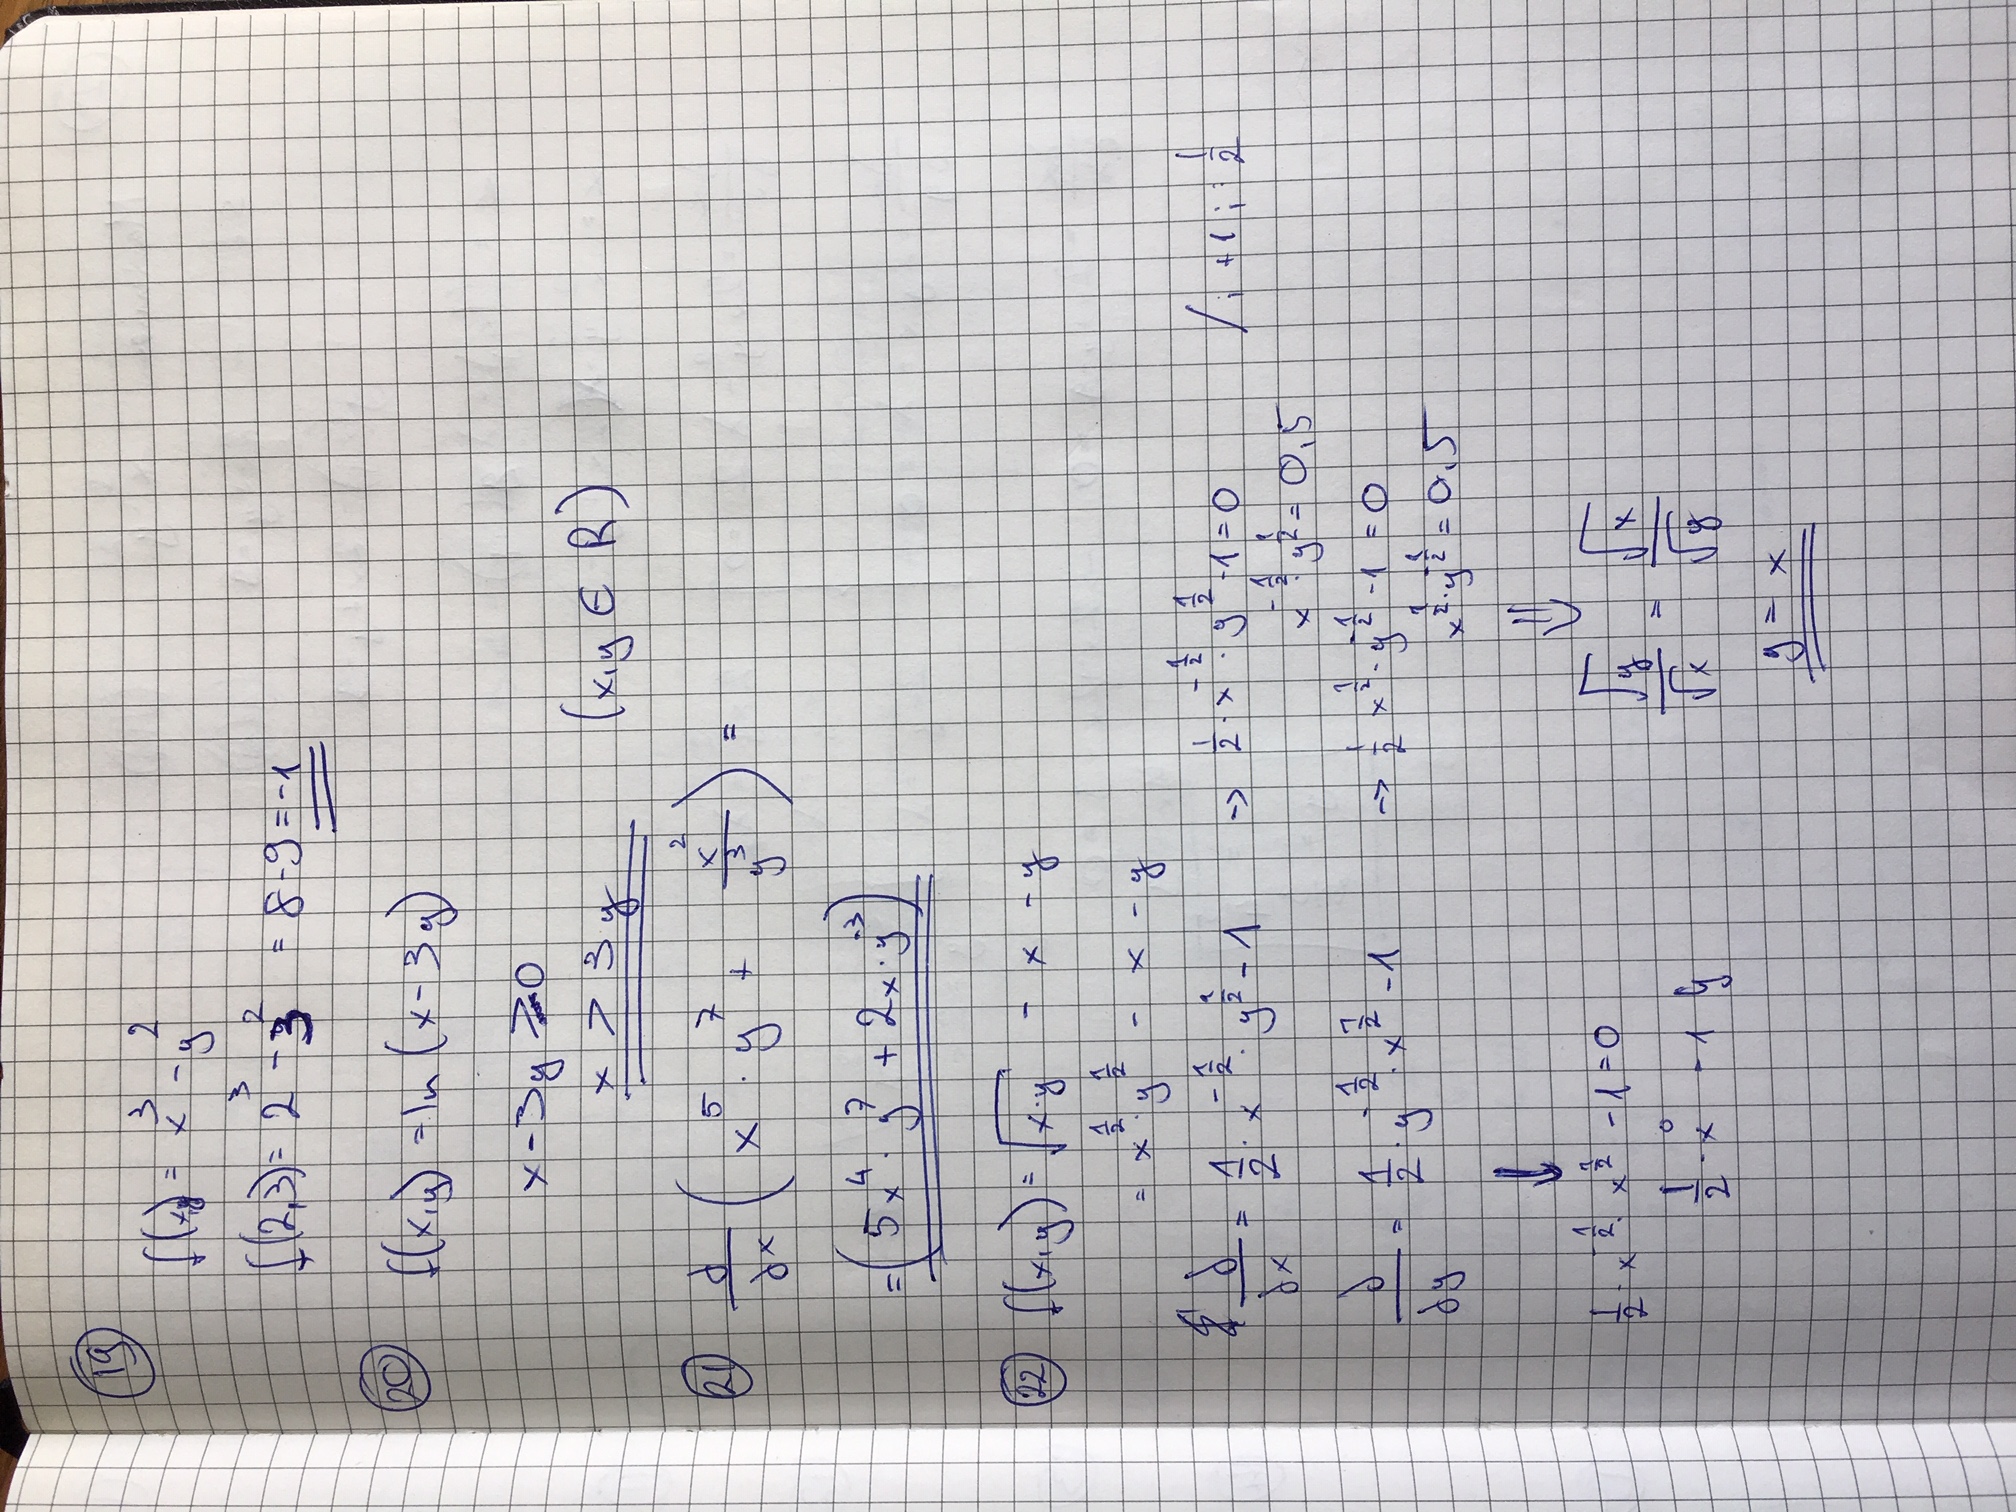 19
f(x,y) = x³ - y²
f(2,3) = 2³ - 3² = 8 - 9 = -1
20
f(x,y) = ln (x - 3y)
x - 3y > 0
x > 3y (x,y ∈ R)
21 ∂/∂x ( x⁵ · y⁷ + x²/y³ ) =
= ( 5x⁴ · y⁷ + 2x · y⁻³ )
22 f(x,y) = √(x·y) - x - y
= x^(1/2) · y^(1/2) - x - y
∂/∂x = 1/2 · x^(-1/2) · y^(1/2) - 1 → 1/2 · x^(-1/2) · y^(1/2) - 1 = 0 / ; +1 ; : 1/2
x^(-1/2) · y^(1/2) = 0,5
∂/∂y = 1/2 · y^(-1/2) · x^(1/2) - 1 → 1/2 x^(1/2) · y^(-1/2) - 1 = 0
x^(1/2) · y^(-1/2) = 0,5
↓ ⇓
1/2 · x^(-1/2) · x^(1/2) - 1 = 0 √y/√x = √x/√y
1/2 · x⁰ - 1
y = x